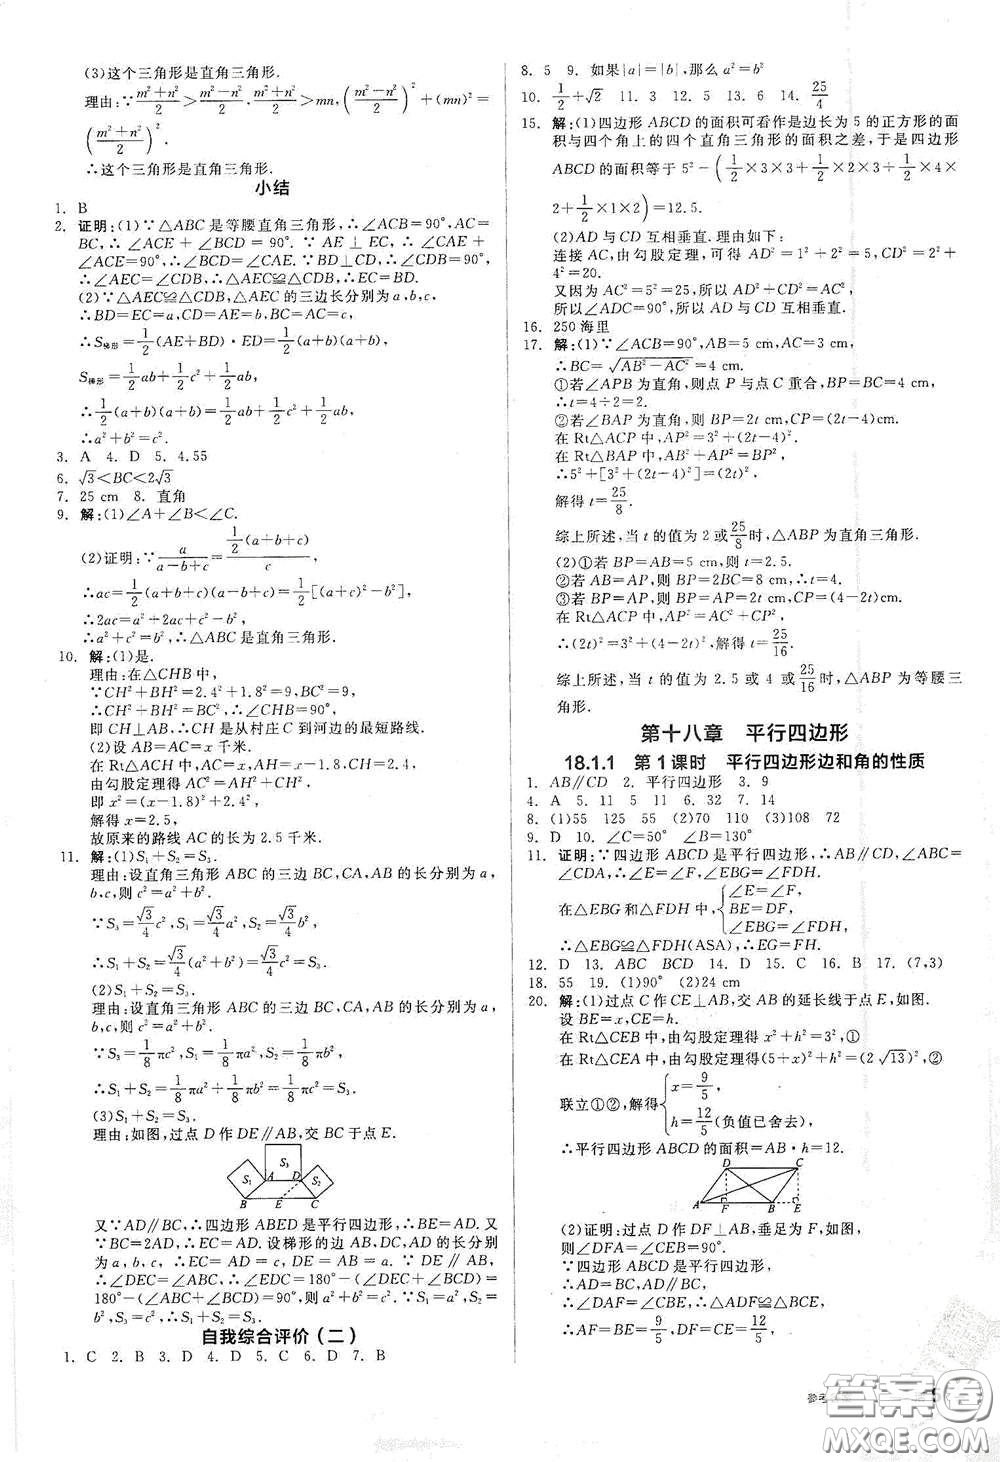 (3)这个三角形是直角三角形.
理由:∵(m²+n²)/2>(m²−n²)/2,(m²+n²)/2>mn,((m²−n²)/2)²+(mn)²=
((m²+n²)/2)².
∴这个三角形是直角三角形.
小结
1. B
2. 证明:(1)∵△ABC是等腰直角三角形,∴∠ACB=90°,AC=
BC,∴∠ACE+∠BCD=90°.∵AE⊥EC,∴∠CAE+
∠ACE=90°,∴∠BCD=∠CAE.∵BD⊥CD,∴∠AEC=
∠CDB=90°,∴△AEC≌△CDB,∴EC=BD.
(2)∵△AEC≌△CDB,△AEC的三边长分别为a,b,c,
∴BD=EC=a,CD=AE=b,BC=AC=c,
∴S梯形=1/2(AE+BD)·ED=1/2(a+b)(a+b),
S梯形=1/2ab+1/2c²+1/2ab,
∴1/2(a+b)(a+b)=1/2ab+1/2c²+1/2ab,
∴a²+b²=c².
3. A 4. D 5. 4.55
6. √3<BC<2√3
7. 25 cm 8. 直角
9. 解:(1)∠A+∠B<∠C.
(2)证明:∵a/(a−b+c)=1/2(a+b+c)/c,
∴ac=1/2(a+b+c)(a−b+c)=1/2[(a+c)²−b²],
∴2ac=a²+2ac+c²−b²,
∴a²+c²=b²,∴△ABC是直角三角形.
10. 解:(1)是.
理由:在△CHB中,
∵CH²+BH²=2.4²+1.8²=9,BC²=9,
∴CH²+BH²=BC²,∴∠CHB=90°,
即CH⊥AB,∴CH是从村庄C到河边的最短路线.
(2)设AB=AC=x千米.
在Rt△ACH中,AH=(x−1.8)千米,
由勾股定理得AC²=AH²+CH²,
即x²=(x−1.8)²+2.4²,
解得x=2.5,
故原来的路线AC的长为2.5千米.
11. 解:(1)S₁+S₂=S₃.
理由:设直角三角形ABC的三边BC,CA,AB的长分别为a,
b,c,则c²=a²+b².
∵S₃=√3/4c²,S₁=√3/4a²,S₂=√3/4b²,
∴S₁+S₂=√3/4(a²+b²)=√3/4c²=S₃.
(2)S₁+S₂=S₃.
理由:设直角三角形ABC的三边BC,CA,AB的长分别为a,
b,c,则c²=a²+b².
∵S₃=1/8πc²,S₁=1/8πa²,S₂=1/8πb²,
∴S₁+S₂=1/8πa²+1/8πb²=1/8πc²=S₃.
(3)S₁+S₂=S₃.
理由:如图,过点D作DE∥AB,交BC于点E.
S₃
S₁ A D S₂
B E C
又∵AD∥BC,∴四边形ABED是平行四边形,∴BE=AD.又
∵BC=2AD,∴EC=AD.设梯形的边AD,DC,AB的长分别
为c,a,b,∴EC=AD=c,DE=AB=b.∵DE∥AB,
∴∠DEC=∠ABC,∴∠EDC=180°−(∠DEC+∠BCD)=
180°−(∠ABC+∠BCD)=90°,则c²=a²+b².∵S₁=a²,S₂=
b²,S₃=c²,∴S₁+S₂=S₃.
自我综合评价(二)
1. C 2. B 3. D 4. D 5. C 6. D 7. B
8. 5 9. 如果|a|=|b|,那么a²=b²
10. 1/2+√2 11. 3 12. 5 13. 6 14. 25/4
15. 解:(1)四边形ABCD的面积可看作是边长为5的正方形的面
积与四个角上的四个直角三角形的面积之差,于是四边形
ABCD的面积等于5²−(1/2×3×3+1/2×1×2+1/2×4×
2+1/2×1×2)=12.5.
(2)AD与CD互相垂直.理由如下:
连接AC,由勾股定理,可得AD²=1²+2²=5,CD²=2²+
4²=20.
又因为AC²=5²=25,所以AD²+CD²=AC²,
所以∠ADC=90°,所以AD与CD互相垂直.
16. 250海里
17. 解:(1)∵∠ACB=90°,AB=5 cm,AC=3 cm,
∴BC=√(AB²−AC²)=4 cm.
①若∠APB为直角,则点P与点C重合,BP=BC=4 cm,
∴t=4÷2=2.
②若∠BAP为直角,则BP=2t cm,CP=(2t−4)cm.
在Rt△ACP中,AP²=3²+(2t−4)².
在Rt△BAP中,AB²+AP²=BP²,
∴5²+[3²+(2t−4)²]=(2t)²,
解得t=25/8.
综上所述,当t的值为2或25/8时,△ABP为直角三角形.
(2)①若BP=AB=5 cm,则t=2.5.
②若AB=AP,则BP=2BC=8 cm,t=4.
③若BP=AP,则BP=AP=2t cm,CP=(4−2t)cm.
在Rt△ACP中,AP²=AC²+CP²,
∴(2t)²=3²+(4−2t)²,解得t=25/16.
综上所述,当t的值为2.5或4或25/16时,△ABP为等腰三
角形.
第十八章 平行四边形
18.1.1 第1课时 平行四边形边和角的性质
1. AB∥CD 2. 平行四边形 3. 9
4. A 5. 11 5 11 6. 32 7. 14
8. (1)55 125 55 (2)70 110 (3)108 72
9. D 10. ∠C=50° ∠B=130°
11. 证明:∵四边形ABCD是平行四边形,∴AB∥CD,∠ABC=
∠CDA,∴∠E=∠F,∠EBG=∠FDH.
∠E=∠F,
在△EBG和△FDH中,{BE=DF,
∠EBG=∠FDH,
∴△EBG≌△FDH(ASA),∴EG=FH.
12. D 13. ABC BCD 14. D 15. C 16. B 17. (7,3)
18. 55 19. (1)90° (2)24 cm
20. 解:(1)过点C作CE⊥AB,交AB的延长线于点E,如图.
设BE=x,CE=h.
在Rt△CEB中,由勾股定理得x²+h²=3²,①
在Rt△CEA中,由勾股定理得(5+x)²+h²=(2√13)²,②
联立①②,解得{x=9/5,
h=12/5(负值已舍去),
∴平行四边形ABCD的面积=AB·h=12.
D C
A F B E
(2)证明:过点D作DF⊥AB,垂足为F,如图,
则∠DFA=∠CEB=90°.
∵四边形ABCD是平行四边形,
∴AD=BC,AD∥BC,
∴∠DAF=∠CBE,∴△ADF≌△BCE,
∴AF=BE=9/5,DF=CE=12/5,
答案圈
MXQE.COM